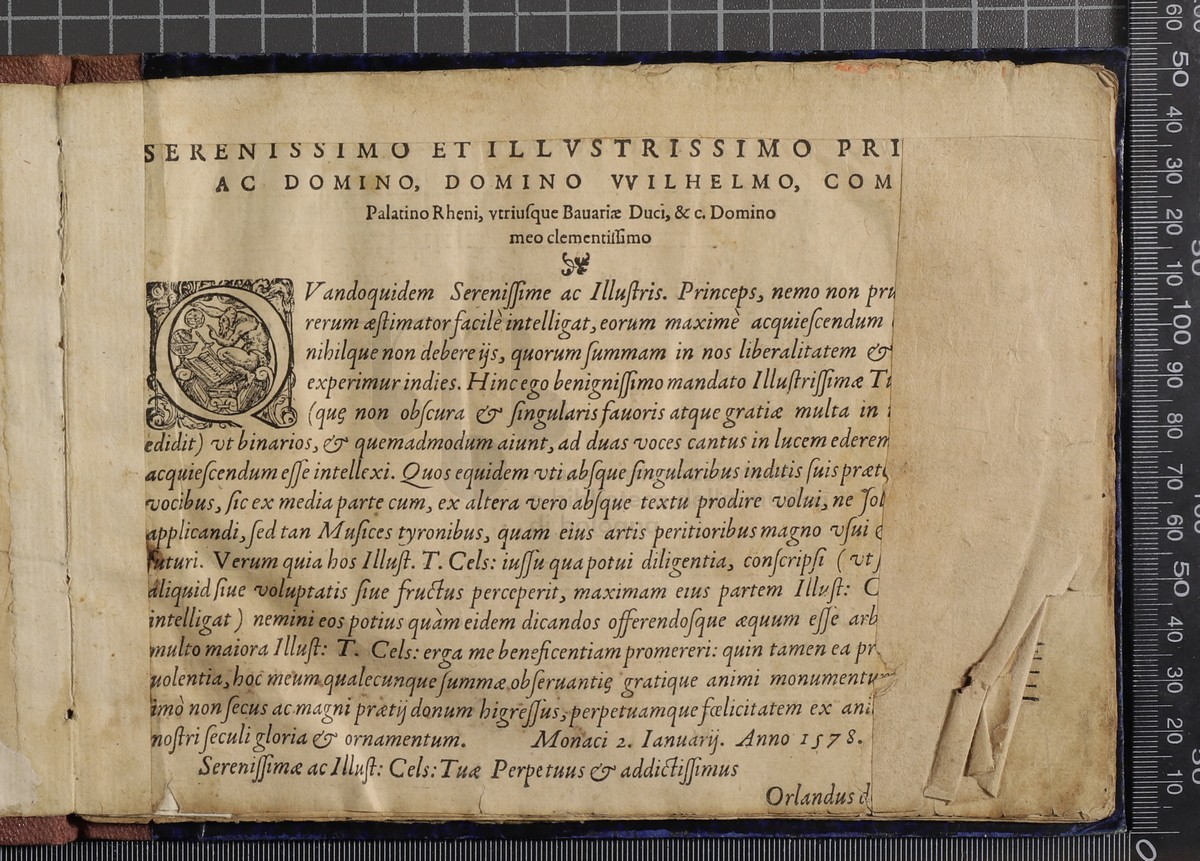 SERENISSIMO ET ILLVSTRISSIMO PRI
AC DOMINO, DOMINO VVILHELMO, COM
Palatino Rheni, vtriuſque Bauariæ Duci, & c. Domino
meo clementiſſimo
QVandoquidem Sereniſſime ac Illuſtris. Princeps, nemo non pru
rerum æſtimator facilè intelligat, eorum maximè acquieſcendum
nihilque non debere ijs, quorum ſummam in nos liberalitatem &
experimur indies. Hinc ego benigniſſimo mandato Illuſtriſſimæ Tu
(quę non obſcura & ſingularis fauoris atque gratiæ multa in
edidit) vt binarios, & quemadmodum aiunt, ad duas voces cantus in lucem ederem
acquieſcendum eſſe intellexi. Quos equidem vti abſque ſingularibus inditis ſuis præt
vocibus, ſic ex media parte cum, ex altera vero abſque textu prodire volui, ne ſol
applicandi, ſed tan Muſices tyronibus, quam eius artis peritioribus magno vſui
futuri. Verum quia hos Illuſt. T. Cels: iuſſu qua potui diligentia, conſcripſi ( vt
aliquid ſiue voluptatis ſiue fructus perceperit, maximam eius partem Illuſt: C
intelligat ) nemini eos potius quàm eidem dicandos offerendoſque æquum eſſe arb
multo maiora Illuſt: T. Cels: erga me beneficentiam promereri: quin tamen ea pr
uolentia, hoc meum qualecunque ſummæ obſeruantię gratique animi monumentu
imò non ſecus ac magni prætij donum higreſſus, perpetuamque fœlicitatem ex ani
noſtri ſeculi gloria & ornamentum. Monaci 2. Ianuarij. Anno 1578.
Sereniſſimæ ac Illuſt: Cels: Tuæ Perpetuus & addictiſſimus
Orlandus d